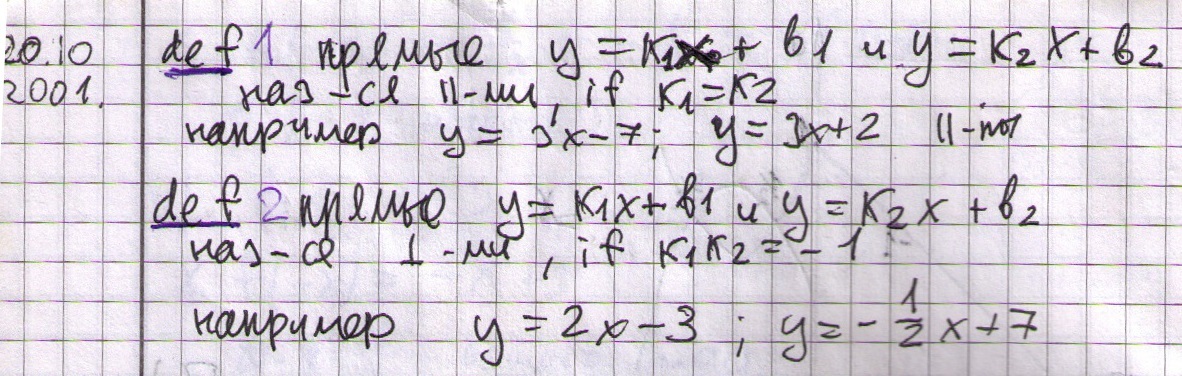 20.10 def 1 прямые y = к₁x + в1 и y = к₂x + в₂
2001. наз-ся ||-ми, if к₁ = к2
например y = 3x - 7; y = 3x + 2 ||-ны
def 2 прямые y = к1x + в1 и y = к₂x + в₂
наз-ся ⊥-ми, if к1к2 = - 1
например y = 2x - 3 ; y = - 1/2 x + 7